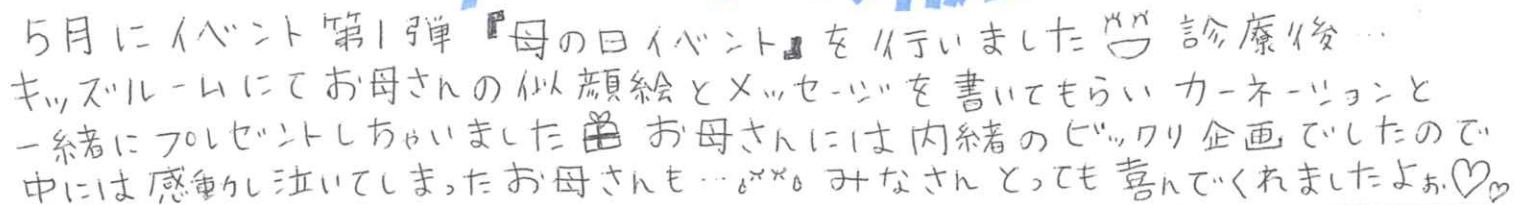 5月にイベント第1弾『母の日イベント』を行いました 診療後…
キッズルームにてお母さんの似顔絵とメッセージを書いてもらいカーネーションと
一緒にプレゼントしちゃいました お母さんには内緒のビックリ企画でしたので
中には感動し泣いてしまったお母さんも… みなさんとっても喜んでくれましたよぉ♡♡